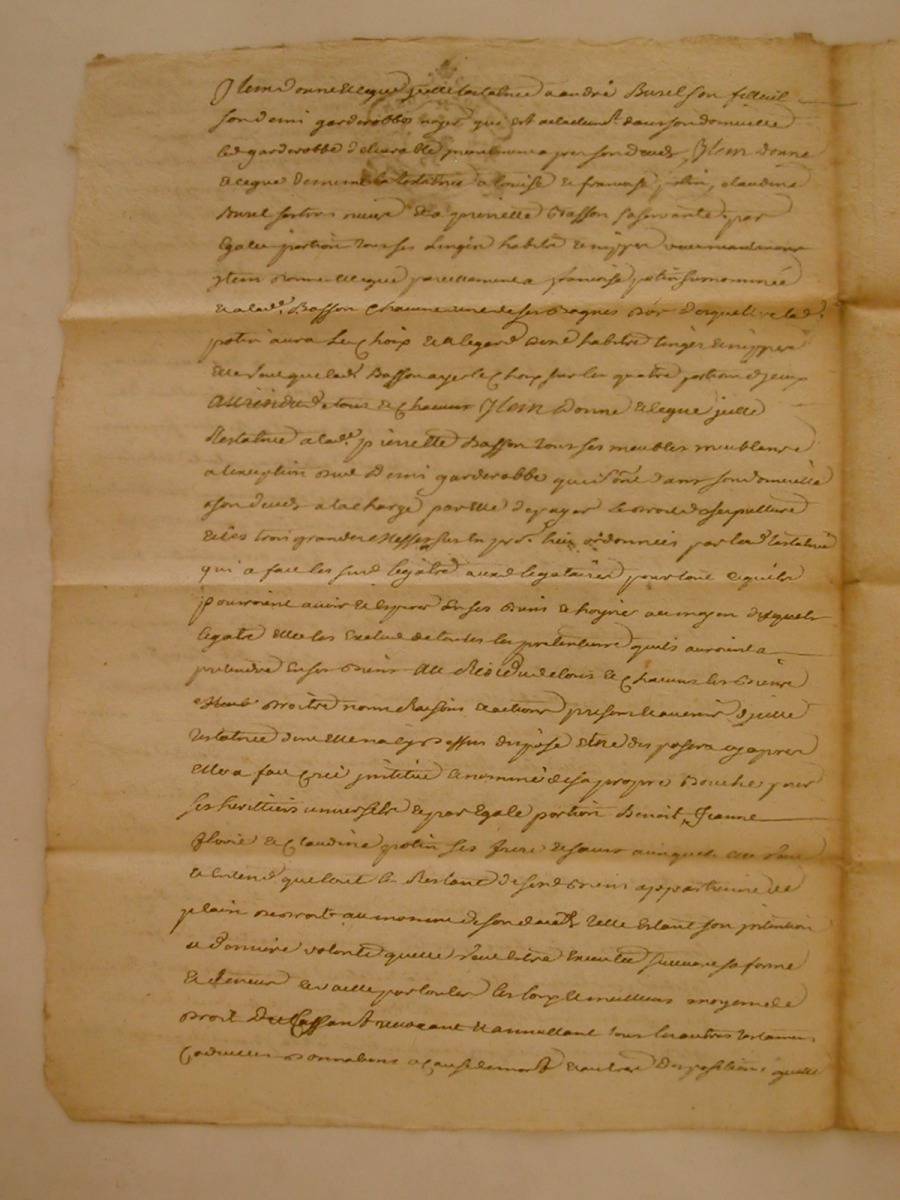 Item donne et legue jcelle testatrice a andré Burel son filleul
son demi garderobbe noyer que est actuellemt dans son domicille
led garderobbe delivrable jncontinent apres son deceds, Item donne
et legue de meme lad testatrice a louise et francoise potin, claudine
Burel ses trois nieces et a pierrette Basson sa servante par
egalle portion tous ses linges habits et nippes
jtem donne et legue pareillement a francoise potin surnommée
et a lade Basson chacune une de ses bagues d'or desquelles lad
potin aura le choix et a legard desd habits linges et nippes
elle veut que lad Basson aye le choix sur les quatre portions d'jceux
au residu de tous et chacuns Item donne et legue jcelle
testatrice a lade pierrette Basson tous ses meubles meublants
a lexception dud demi garderobbe qui sont dans son domicille
a son deceds a la charge par elle de payer le droit de sepulture
et les trois grandes Messes ordonnées par lad testatrice
qui a fait les susd legats auxd legataires pour tout ce quils
pourroient avoir et esperer en ses biens et hoyrie au moyen desquels
legats elle les exclud de toutes les pretentions quils auroient a
pretendre en ses biens Au Residu de tous et chacuns les biens
meub droits noms Raisons et actions presens et avenir d'jcelle
testatrice dont elle na cy dessus disposé et ne disposera cy apres
elle a fait créé jnstitué et nommé de sa propre Bouche pour
ses heritiers universels et par egale portion Benoit, Jeanne
florie et claudine potin ses frere et sœurs auxquels elle veut
et entend que tout le Restant de sesd biens appartienne de
plain droit au moment de son deceds telle etant son jntention
et derniere volonté quelle veut etre executée suivant sa forme
et teneur et vaille par toutes les loix et meilleurs moyens de
droit Cassant revocant et annullant tous les autres testamens
Codicilles donnations a cause de mort et autres dispositions quelle